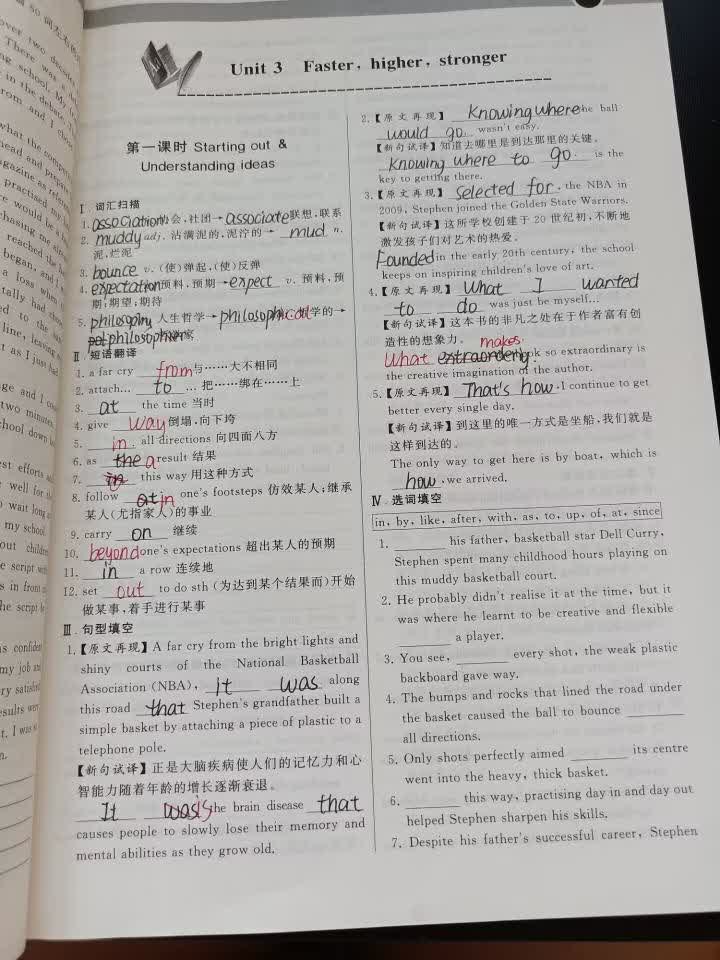 Unit 3 Faster, higher, stronger
第一课时 Starting out &
Understanding ideas
Ⅰ. 词汇扫描
1. association 协会,社团→associate 联想,联系
2. muddy adj. 沾满泥的,泥泞的→ mud n.
泥,烂泥
3. bounce v. (使)弹起,(使)反弹
4. expectation 预料,预期→expect v. 预料,预
期;期望;期待
5. 人生哲学→philosophical 哲学的→
philosopher
Ⅱ. 短语翻译
1. a far cry from 与……大不相同
2. attach… to … 把……绑在……上
3. at the time 当时
4. give way 倒塌,向下垮
5. in all directions 向四面八方
6. as the a result 结果
7. in this way 用这种方式
8. follow at in one's footsteps 仿效某人;继承
某人(尤指家人)的事业
9. carry on 继续
10. beyond one's expectations 超出某人的预期
11. in a row 连续地
12. set out to do sth (为达到某个结果而)开始
做某事,着手进行某事
Ⅲ. 句型填空
1.【原文再现】A far cry from the bright lights and
shiny courts of the National Basketball
Association (NBA), it was along
this road that Stephen's grandfather built a
simple basket by attaching a piece of plastic to a
telephone pole.
【新句试译】正是大脑疾病使人们的记忆力和心
智能力随着年龄的增长逐渐衰退。
It was is the brain disease that
causes people to slowly lose their memory and
mental abilities as they grow old.
2.【原文再现】 Knowing where he ball
would go wasn't easy.
【新句试译】知道去哪里是到达那里的关键。
Knowing where to go is the
key to getting there.
3.【原文再现】 selected for the NBA in
2009, Stephen joined the Golden State Warriors.
【新句试译】这所学校创建于 20 世纪初,不断地
激发孩子们对艺术的热爱。
Founded in the early 20th century, the school
keeps on inspiring children's love of art.
4.【原文再现】 What I wanted
to do was just be myself…
【新句试译】这本书的非凡之处在于作者富有创
造性的想象力。 makes
What ok so extraordinary is
the creative imagination of the author.
5.【原文再现】 That's how I continue to get
better every single day.
【新句试译】到这里的唯一方式是坐船,我们就是
这样到达的。
The only way to get here is by boat, which is
how we arrived.
Ⅳ. 选词填空
in, by, like, after, with, as, to, up, of, at, since
1. his father, basketball star Dell Curry,
Stephen spent many childhood hours playing on
this muddy basketball court.
2. He probably didn't realise it at the time, but it
was where he learnt to be creative and flexible
a player.
3. You see, every shot, the weak plastic
backboard gave way.
4. The bumps and rocks that lined the road under
the basket caused the ball to bounce
all directions.
5. Only shots perfectly aimed its centre
went into the heavy, thick basket.
6. this way, practising day in and day out
helped Stephen sharpen his skills.
7. Despite his father's successful career, Stephen